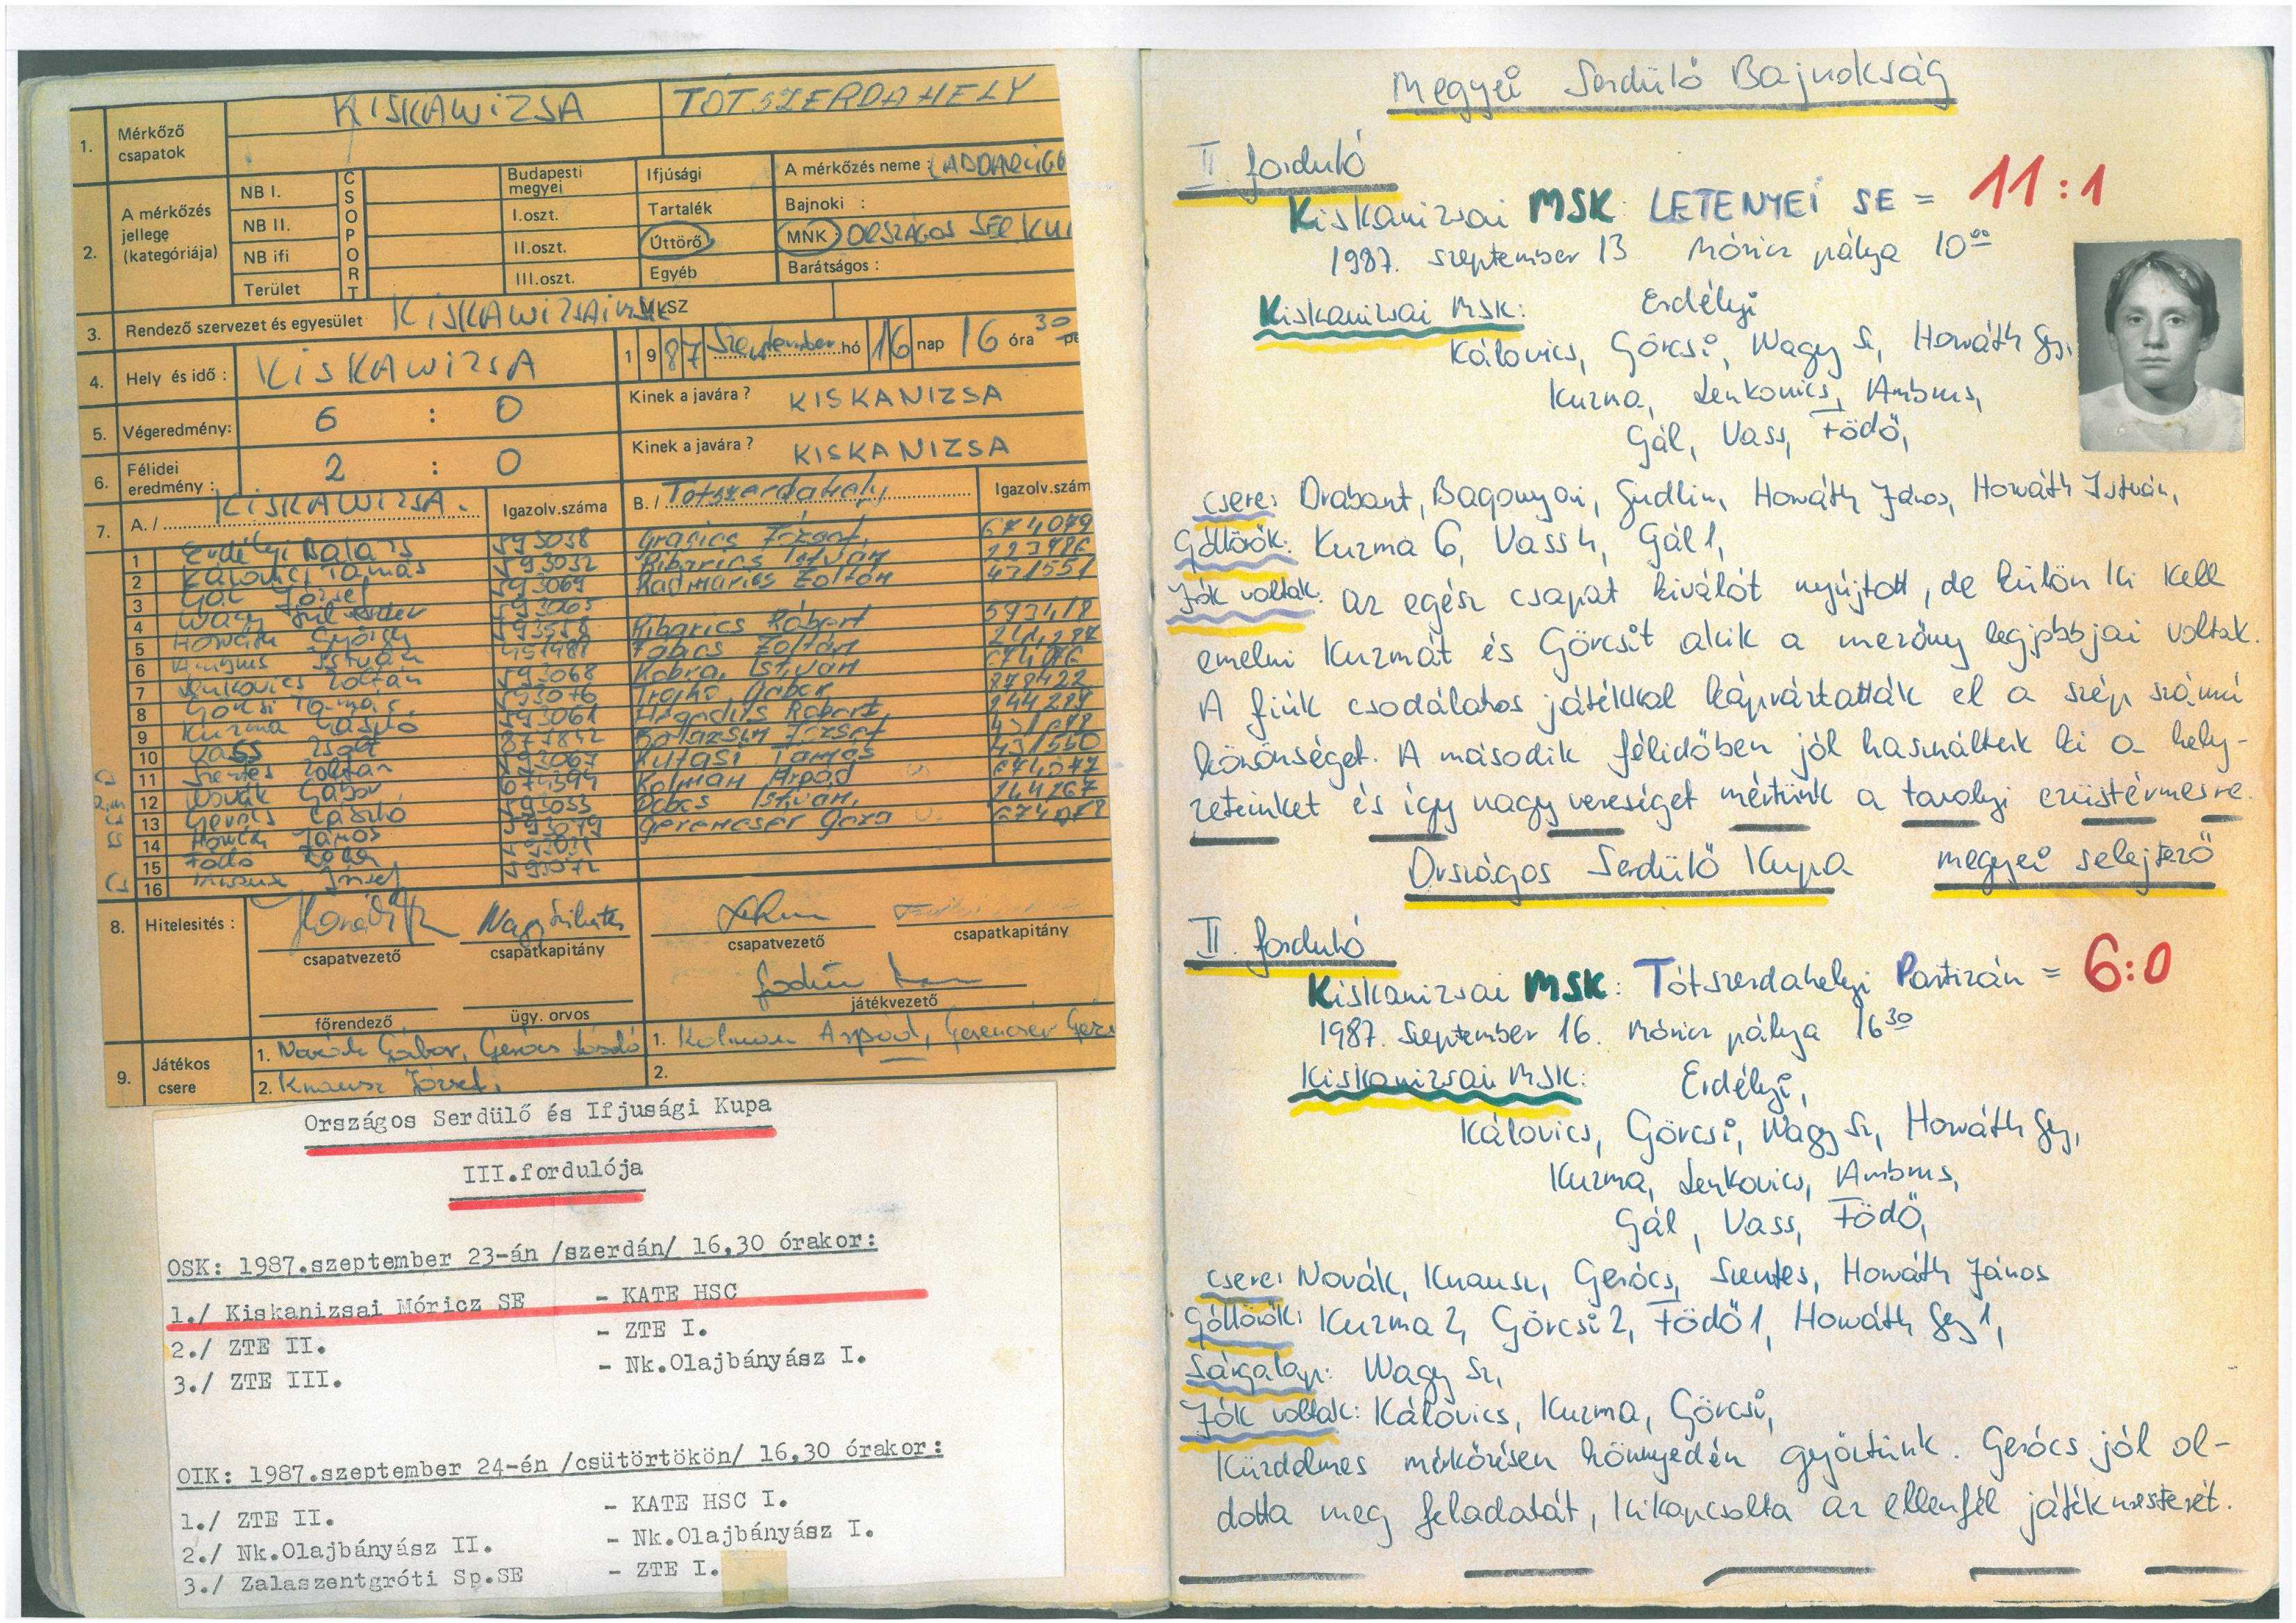 1. Mérkőző csapatok KISKAWIZSA TÓTSZERDAHELY
2. A mérkőzés jellege (kategóriája)
NB I.
NB II.
NB ifi
Terület
CSOPORT
Budapesti megyei
I.oszt.
II.oszt.
III.oszt.
Ifjúsági
Tartalék
Úttörő
Egyéb
A mérkőzés neme :
Bajnoki :
MNK ORSZÁGOS SER. KU
Barátságos :
3. Rendező szervezet és egyesület KISKAWIZSAI MSK MKSZ
4. Hely és idő : KISKAWIZSA 1987 Szeptember hó 16 nap 16 óra 30 pe
5. Végeredmény: 6 : 0 Kinek a javára ? KISKANIZSA
6. Félidei eredmény : 2 : 0 Kinek a javára ? KISKANIZSA
7. A./ KISKAWIZSA. Igazolv.száma B./ Tótszerdahely Igazolv.szám
1 Erdélyi Balázs 593058 József, 674079
2 Kálovics Tamás 593032 Ribarics István
3 Gál József 593069 Kadmarics Zoltán 431551
4 Nagy Szilveszter 593065
5 Horváth György Ribarics Róbert 593418
6 Ambrus István Zoltán
7 Lenkovics Zoltán 593068 Kobra István
8 Görcsi Tamás 593076 Trojkó Gábor 878422
9 Kuzma László 593061 Róbert 244284
10 Vass Zsolt 873842 József
11 Szentes Zoltán 593067 Kutasi Tamás 431550
12 Novák Gábor 674394 Kolman Árpád 674077
13 Gerócs László 593055 István 144267
14 Horváth János 593079 Gerencsér Géza
15 Födő
16 Knausz József 593072
8. Hitelesítés : Nagy Szilveszter
csapatvezető csapatkapitány csapatvezető csapatkapitány
játékvezető
főrendező ügy. orvos
9. Játékos csere 1. Novák Gábor, Gerócs László 1. Kolman Árpád, Gerencsér Géza
2. Knausz József, 2.
Országos Serdülő és Ifjusági Kupa
III.fordulója
OSK: 1987.szeptember 23-án /szerdán/ 16,30 órakor:
1./ Kiskanizsai Móricz SE - KATE HSC
2./ ZTE II. - ZTE I.
3./ ZTE III. - Nk.Olajbányász I.
OIK: 1987.szeptember 24-én /csütörtökön/ 16,30 órakor:
1./ ZTE II. - KATE HSC I.
2./ Nk.Olajbányász II. - Nk.Olajbányász I.
3./ Zalaszentgróti Sp.SE - ZTE I.
Megyei Serdülő Bajnokság
II forduló
Kiskanizsai MSK: LETENYEI SE = 11:1
1987. szeptember 13 Móricz pálya 10⁰⁰
Kiskanizsai MSK: Erdélyi
Kálovics, Görcsi, Nagy Sz, Horváth Gy,
Kuzma, Lenkovics, Ambrus,
Gál, Vass, Födő,
csere: Drabant, Bagonyai, Gudlin, Horváth János, Horváth István,
Góllövők: Kuzma 6, Vass 4, Gál 1,
Jók voltak: az egész csapat kiválót nyújtott, de külön ki kell
emelni Kuzmát és Görcsit akik a mezőny legjobbjai voltak.
A fiúk csodálatos játékkal kápráztatták el a szép számú
közönséget. A második félidőben jól használtuk ki a hely-
zeteinket és így nagy vereséget mértünk a tavalyi ezüstérmesre.
Országos Serdülő Kupa megyei selejtező
II. forduló
Kiskanizsai MSK: Tótszerdahelyi Partizán = 6:0
1987. Szeptember 16. Móricz pálya 16³⁰
Kiskanizsai MSK: Erdélyi,
Kálovics, Görcsi, Nagy Sz, Horváth Gy,
Kuzma, Lenkovics, Ambrus,
Gál, Vass, Födő,
csere: Novák, Knausz, Gerócs, Szentes, Horváth János
Góllövők: Kuzma 2, Görcsi 2, Födő 1, Horváth Gy 1,
Sárgalap: Nagy Sz,
Jók voltak: Kálovics, Kuzma, Görcsi,
Küzdelmes mérkőzésen könnyedén győztünk. Gerócs jól ol-
dotta meg feladatát, kikapcsolta az ellenfél játékmesterét.